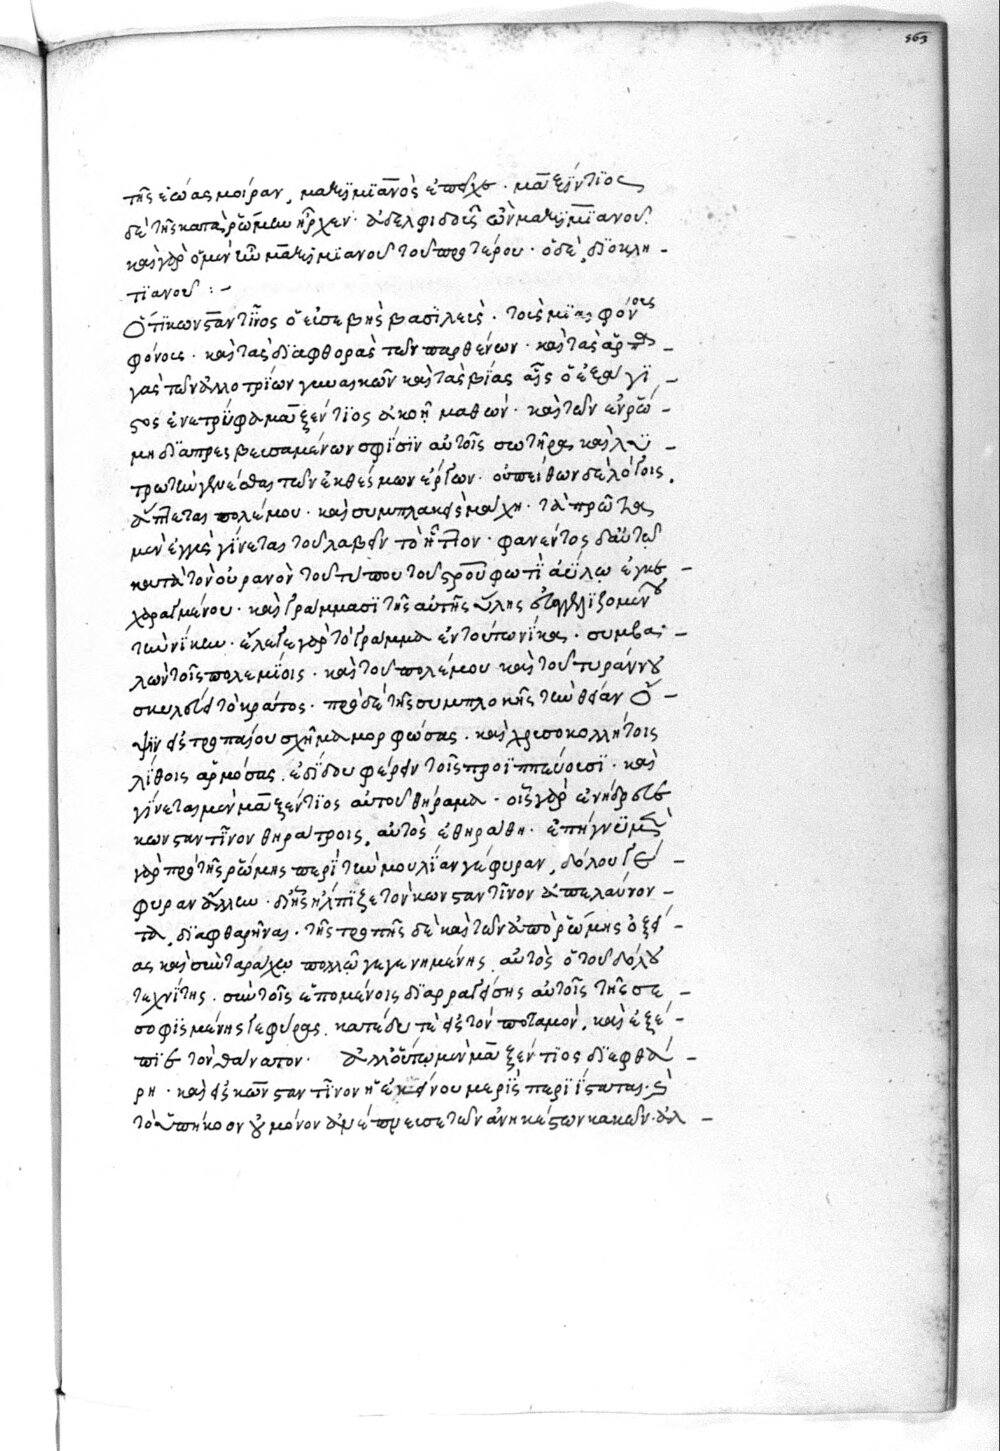 563
τῆς ἑώας μοίραν, μαξιμιανὸς ἐπεῖχε · μαξέντιος
δὲ τῆς κατὰ ῥώμην ἦρχεν · ἀδελφιδοῖ ὢν μαξιμιανοῦ
καὶ γὰρ ὁ μὲν ἦν μαξιμιανοῦ τοῦ προτέρου · ὁ δὲ, διοκλη –
τιανοῦ : –
Ὅτι κωνσταντῖνος ὁ εὐσεβὴς βασιλεὺς · τοὺς μιαιφόνους
φόνους · καὶ τὰς διαφθορὰς τῶν παρθένων · καὶ τὰς ἁρπα –
γὰς τῶν ἀλλοτρίων γυναικῶν καὶ τὰς βίας αἷς ὁ ἐξάγι –
στος ἐνετρύφα μαξέντιος ἀκοῇ μαθών · καὶ τῶν ἐν ῥώ –
μη διαπρεσβευσαμένων σφίσιν αὐτοῖς σωτῆρα καὶ λυ –
τρωτὴν γενέσθαι τῶν ἐκθέσμων ἔργων · οὐ πείθων δὲ λόγοις,
ἅπτεται πολέμου · καὶ συμπλακεὶς μάχη · τὰ πρῶτα
μὲν ἐγγὺς γίνεται τοῦ λαβεῖν τὸ ἧττον · φανέντος δ' αὐτῷ
κατὰ τὸν οὐρανὸν τοῦ τύπου τοῦ σταυροῦ φωτὶ ἀΰλῳ ἐγκε –
χαραγμένου · καὶ γράμμασι τῆς αὐτῆς ὕλης εὐαγγελιζομένου
τὴν νίκην · ἔλεγε γὰρ τὸ γράμμα ἐν τούτω νίκα · συμβα –
λὼν τοῖς πολεμίοις · καὶ τοῦ πολέμου καὶ τοῦ τυράννου
σκυλεύει τὸ κράτος · πρὸ δὲ τῆς συμπλοκῆς τὴν θείαν ὄ –
ψιν εἰς τροπαίου σχῆμα μορφώσας · καὶ χρυσοκολλήτοις
λίθοις ἁρμόσας · ἐδίδου φέρειν τοῖς προϊππεύουσι · καὶ
γίνεται μὲν μαξέντιος αὐτοῦ θήραμα · οἷς γὰρ ἐνήδρευε
κωνσταντῖνον θηράτροις, αὐτὸς ἐθηράθη · ἐπήγνυ μὲν
γὰρ πρὸ τῆς ῥώμης περὶ τὴν μουλίαν γέφυραν, δόλου γέ –
φυραν ἄλλην · δι' ἧς ἤλπιζε τὸν κωνσταντῖνον ἀπελαύνον –
τα, διαφθαρῆναι · τῆς τροπῆς δὲ καὶ τῶν ἀπὸ ῥώμης ὀξεί –
ας καὶ σὺν ταράχῳ πολλῷ γεγενημένης, αὐτὸς ὁ τοῦ δόλου
τεχνίτης · σὺν τοῖς ἑπομένοις διαρραγείσης αὐτοῖς τῆς σε –
σοφισμένης γεφύρας, κατέδυ τε εἰς τὸν ποταμὸν, καὶ ἐξέ –
πιε τὸν θάνατον · ἀλλ' οὕτω μὲν μαξέντιος διεφθά –
ρη · καὶ εἰς κωνσταντῖνον ἡ ἐκείνου μερὶς περιίσταται · καὶ
τὸ ὑπήκοον οὐ μόνον ἀνέπνευσε τῶν ἀνηκέστων κακῶν · ἀλ –